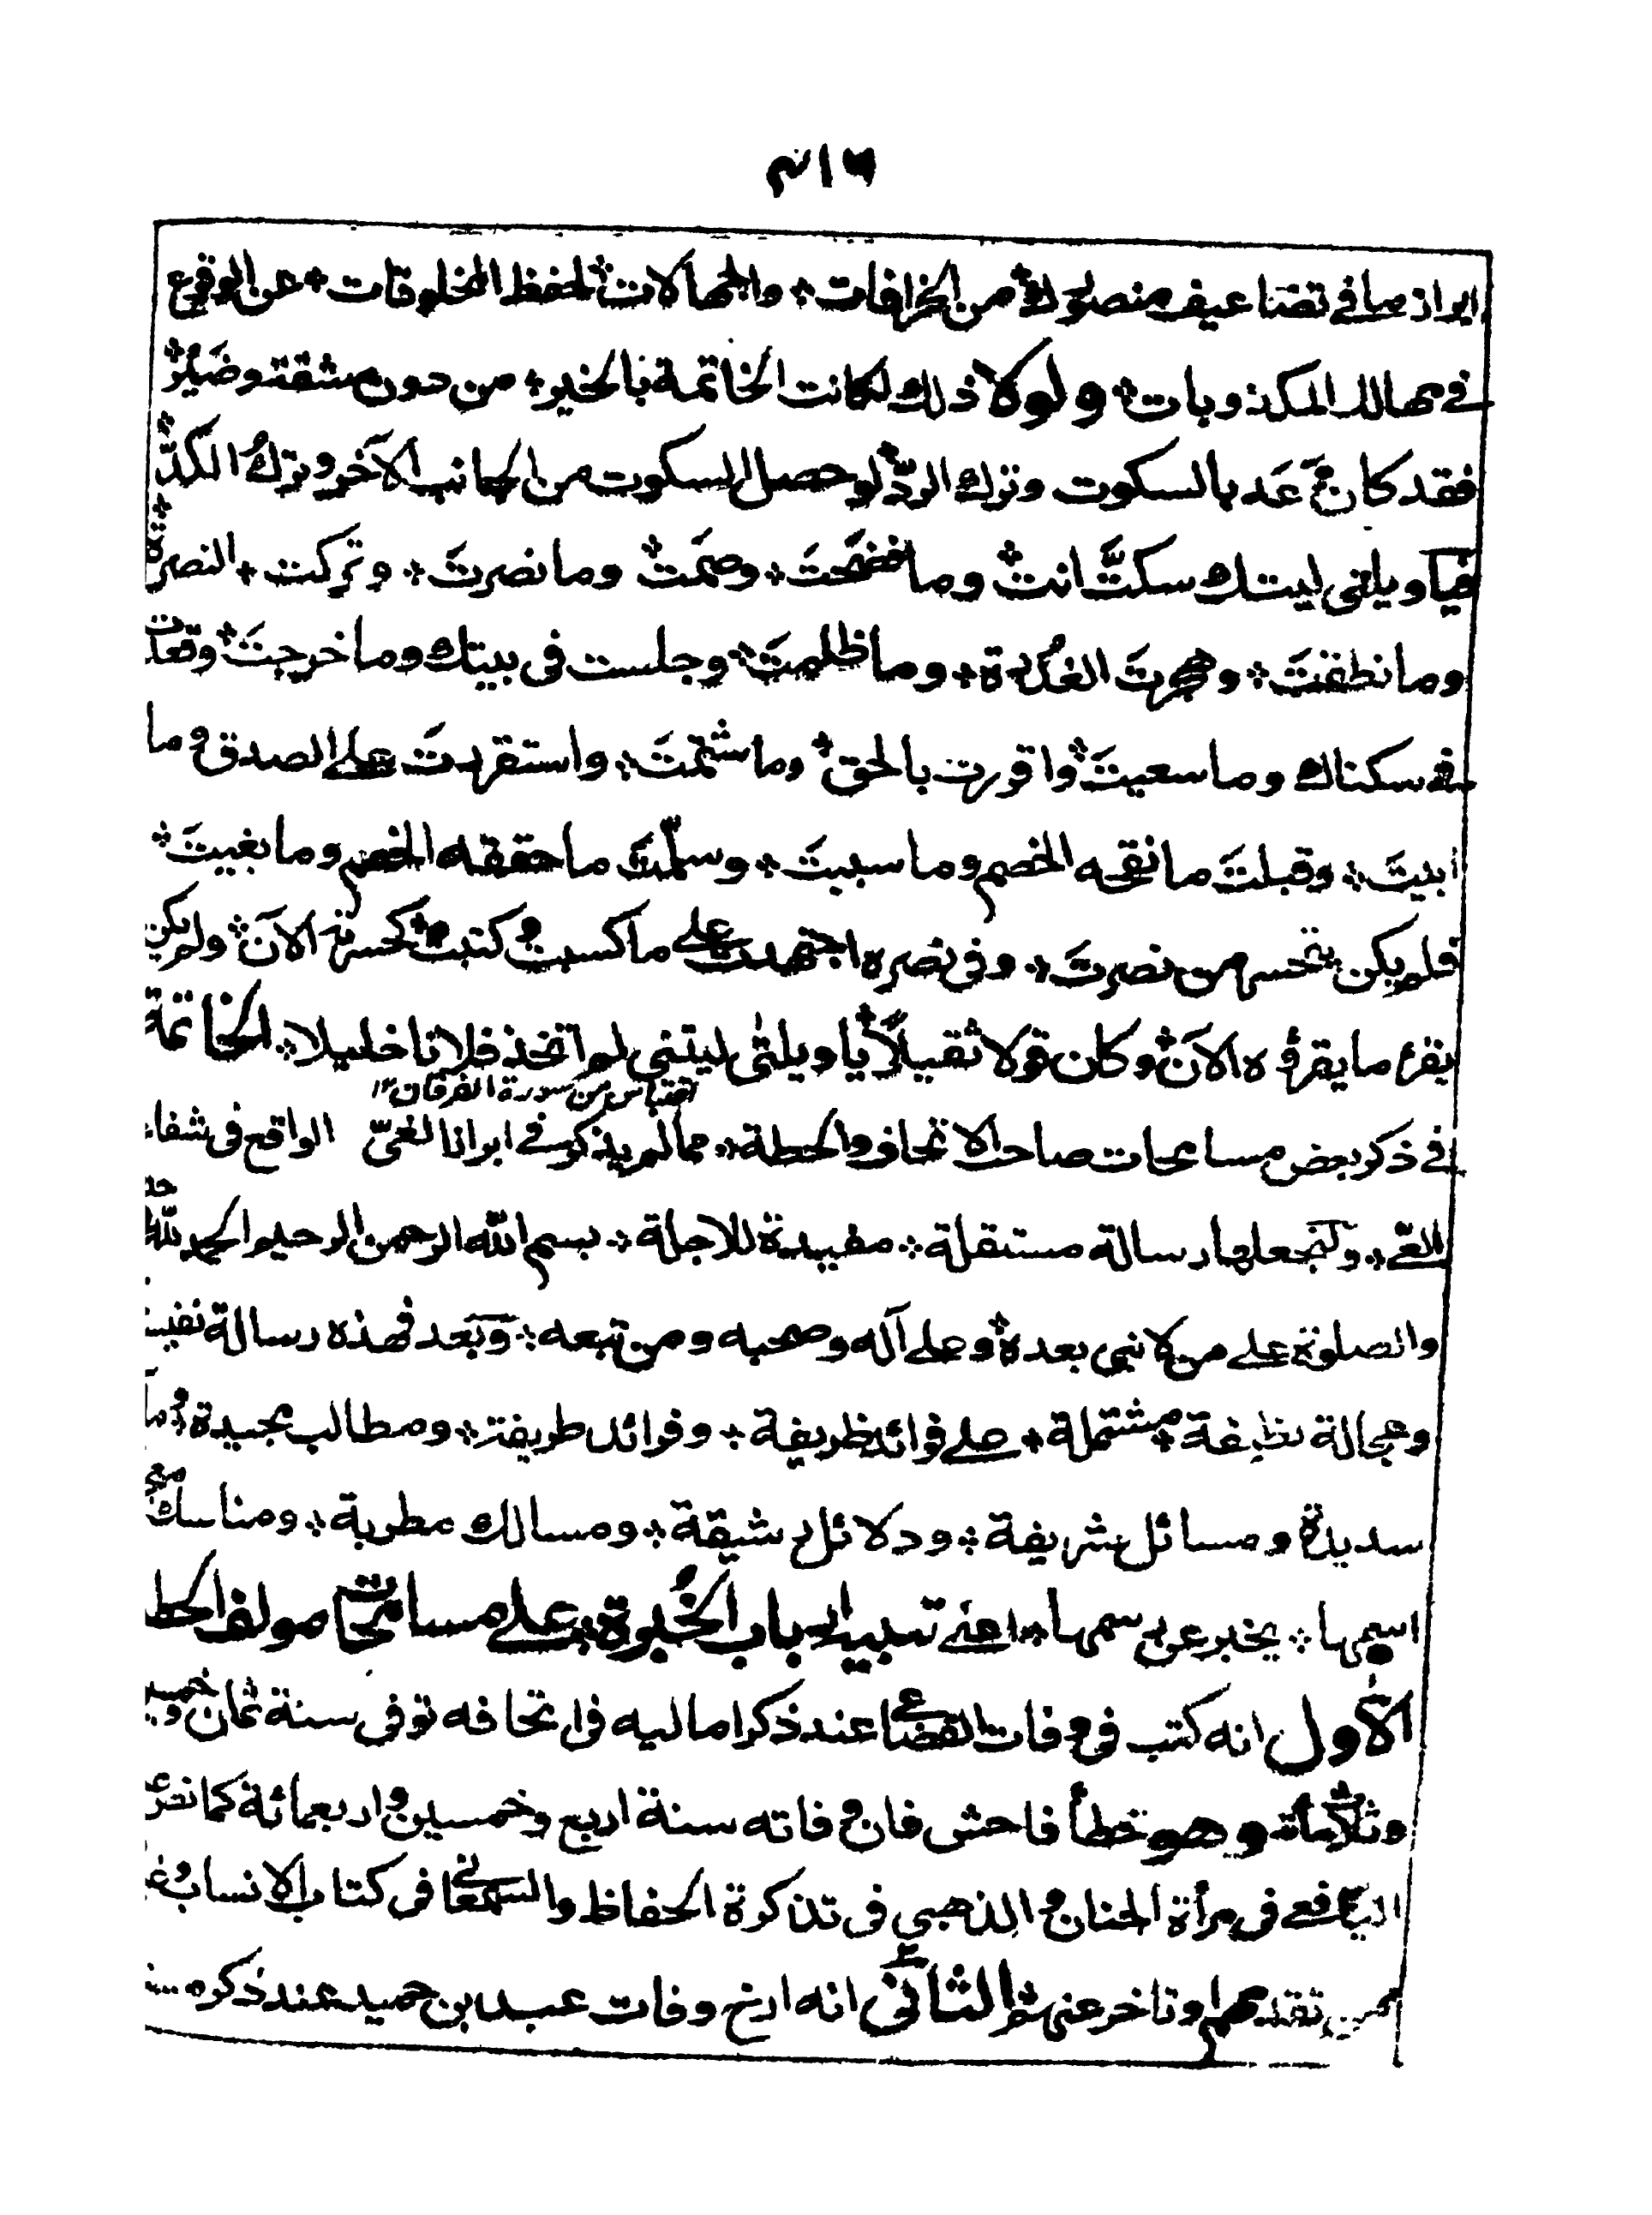 ٤١٦
ابراز ما في تضاعيف منصوراته من الخرافات٭ والجهالات٭ لحفظ المخلوقات٭ عن الوقوع
في مهالك المكذوبات٭ ولولا ذلك لكانت الخاتمة بالخير٭ من دون مشقة وضير٭
فقد كان وعد بالسكوت وترك الرد٭ لو حصل السكوت من الجانب الآخر وترك الكد٭
فيا ويلتى ليتك سكتَّ انت٭ وما فضحتَ٭ وصمَتَّ٭ وما نصرتَ٭ وتركت٭ النصرة٭
وما نطقتَ٭ وهجرتَ الغُدرة٭ وما ظلمتَ٭ وجلست في بيتك وما خرجتَ٭ وقعدت
في سكناك وما سعيتَ٭ واقررت بالحق٭ وما شتمتَ٭ واستقررتَ على الصدق وما
ابيتَ٭ وقبلتَ ما نقحه الخصم وما سببتَ٭ وسلّمتَ ما حققه الخصم وما بغيتَ٭
فلم يكن يتحسر من نصرتَ٭ وفي نصره اجتهدت على ما كسبت وكتبت٭ كحسرته الآنَ٭ ولم يكن
يقرء ما يقرؤه الآنَ٭ وكان قولا ثقيلًا٭ يا ويلتى ليتني لم اتخذ فلانا خليلا٭ الخاتمة
اقتباس من سورة الفرقان ١٢
في ذكر بعض مسامحات صاحب الاتحاف والحطة٭ مما لم يذكر في ابراز الغيّ الواقع في شفاء
العي٭ ولنجعلها رسالة مستقلة٭ مفيدة للاجلة٭ بسم الله الرحمن الرحيم الحمد لله وحده
والصلوة على من لا نبي بعده٭ وعلى آله وصحبه ومن تبعه٭ وبَعد فهذه رسالة نفيسة
وعجالة نظيفة٭ مشتملة٭ على فوائد ظريفة٭ وفرائد طريفة٭ ومطالب مجيدة٭
سديدة ومسائل شريفة٭ ودلائل رشيقة٭ ومسالك مطربة٭ ومناسك
اسمها٭ يخبر عن رسمها٭ اعني تنبيه ارباب الخُبرة٭ على مسامحات مولف الحطة
الأول انه كتب في وفات القضاعي عند ذكر اماليه في اتحافه توفي سنة ثمان وخمسين
وثلاثمائة وهو خطأ فاحش فان وفاته سنة اربع وخمسين واربعمائة كما
اليافعي في مرأة الجنان والذهبي في تذكرة الحفاظ والسمعاني في كتاب الانساب
ممن تقدمهم او تاخر عنهم الثاني انه ارخ وفات عبد بن حميد عند ذكره